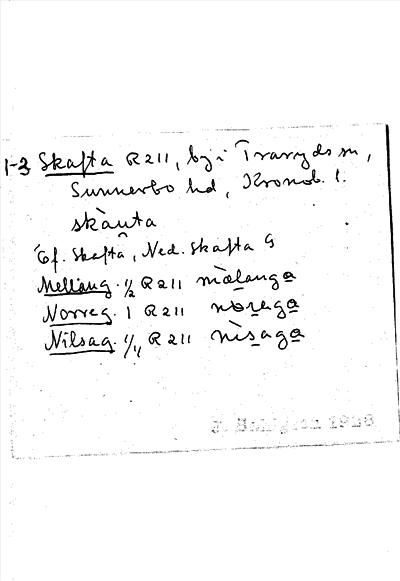 1-3 Skafta R 211, by i Traryds sn,
Sunnerbo hd, Kronob. l.
skàu̯ta
Öf. Skafta, Ned. Skafta G
Mellang. ½ R 211 mälanga
Norreg. 1 R 211 norega
Nilsag. 1/4 R 211 nisaga
J. Sahlgren 1926